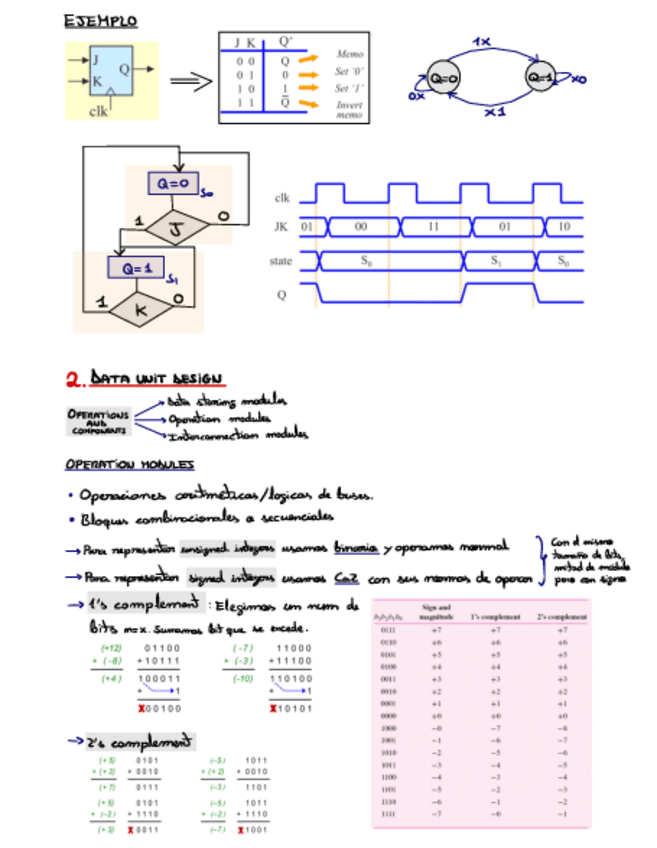 EJEMPLO
J
K
Q
clk
J K Q+
0 0 Q Memo
0 1 0 Set '0'
1 0 1 Set '1'
1 1 Q̅ Invert memo
1X
Q=0
Q=1
0X
X0
X1
Q=0
S0
1 J 0
Q=1
S1
1 K 0
clk
JK 01 00 11 01 10
state S0 S1 S0
Q
2. DATA UNIT DESIGN
OPERATIONS AND COMPONENTS
Data storing modules
Operation modules
Interconnection modules
OPERATION MODULES
• Operaciones aritméticas/logicas de buses.
• Bloques combinacionales a secuenciales
→ Para representar unsigned integers usamos binario y operamos normal
→ Para representar signed integers usamos Ca2 con sus normas de operar
Con el mismo
tamaño de bits,
mitad de módulo
para con signo
→ 1's complement : Elegimos un num de
bits m=x. Sumamos bit que se excede.
(+12) 01100
+ (-8) +10111
(+4) 100011
+ 1
X00100
(-7) 11000
+ (-3) +11100
(-10) 110100
+ 1
X10101
→ 2's complement
(+5) 0101
+ (+2) + 0010
(+7) 0111
(-5) 1011
+ (+2) + 0010
(-3) 1101
(+5) 0101
+ (-2) + 1110
(+3) X 0011
(-5) 1011
+ (-2) + 1110
(-7) X 1001
b3b2b1b0 Sign and magnitude 1's complement 2's complement
0111 +7 +7 +7
0110 +6 +6 +6
0101 +5 +5 +5
0100 +4 +4 +4
0011 +3 +3 +3
0010 +2 +2 +2
0001 +1 +1 +1
0000 +0 +0 +0
1000 −0 −7 −8
1001 −1 −6 −7
1010 −2 −5 −6
1011 −3 −4 −5
1100 −4 −3 −4
1101 −5 −2 −3
1110 −6 −1 −2
1111 −7 −0 −1